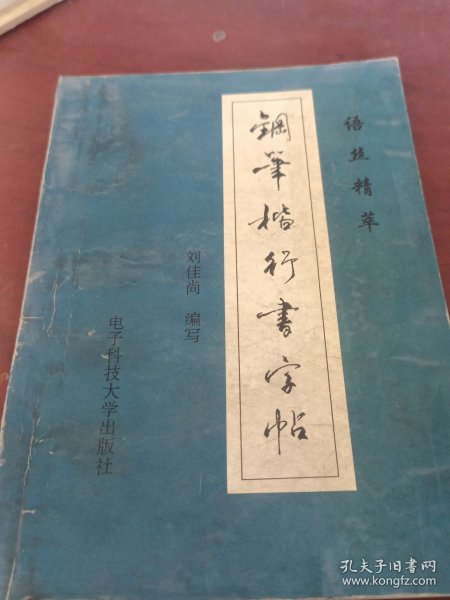 语丝精萃
鋼筆楷行書字帖
刘佳尚 编写
电子科技大学出版社
孔夫子旧书网
www.kongfz.com